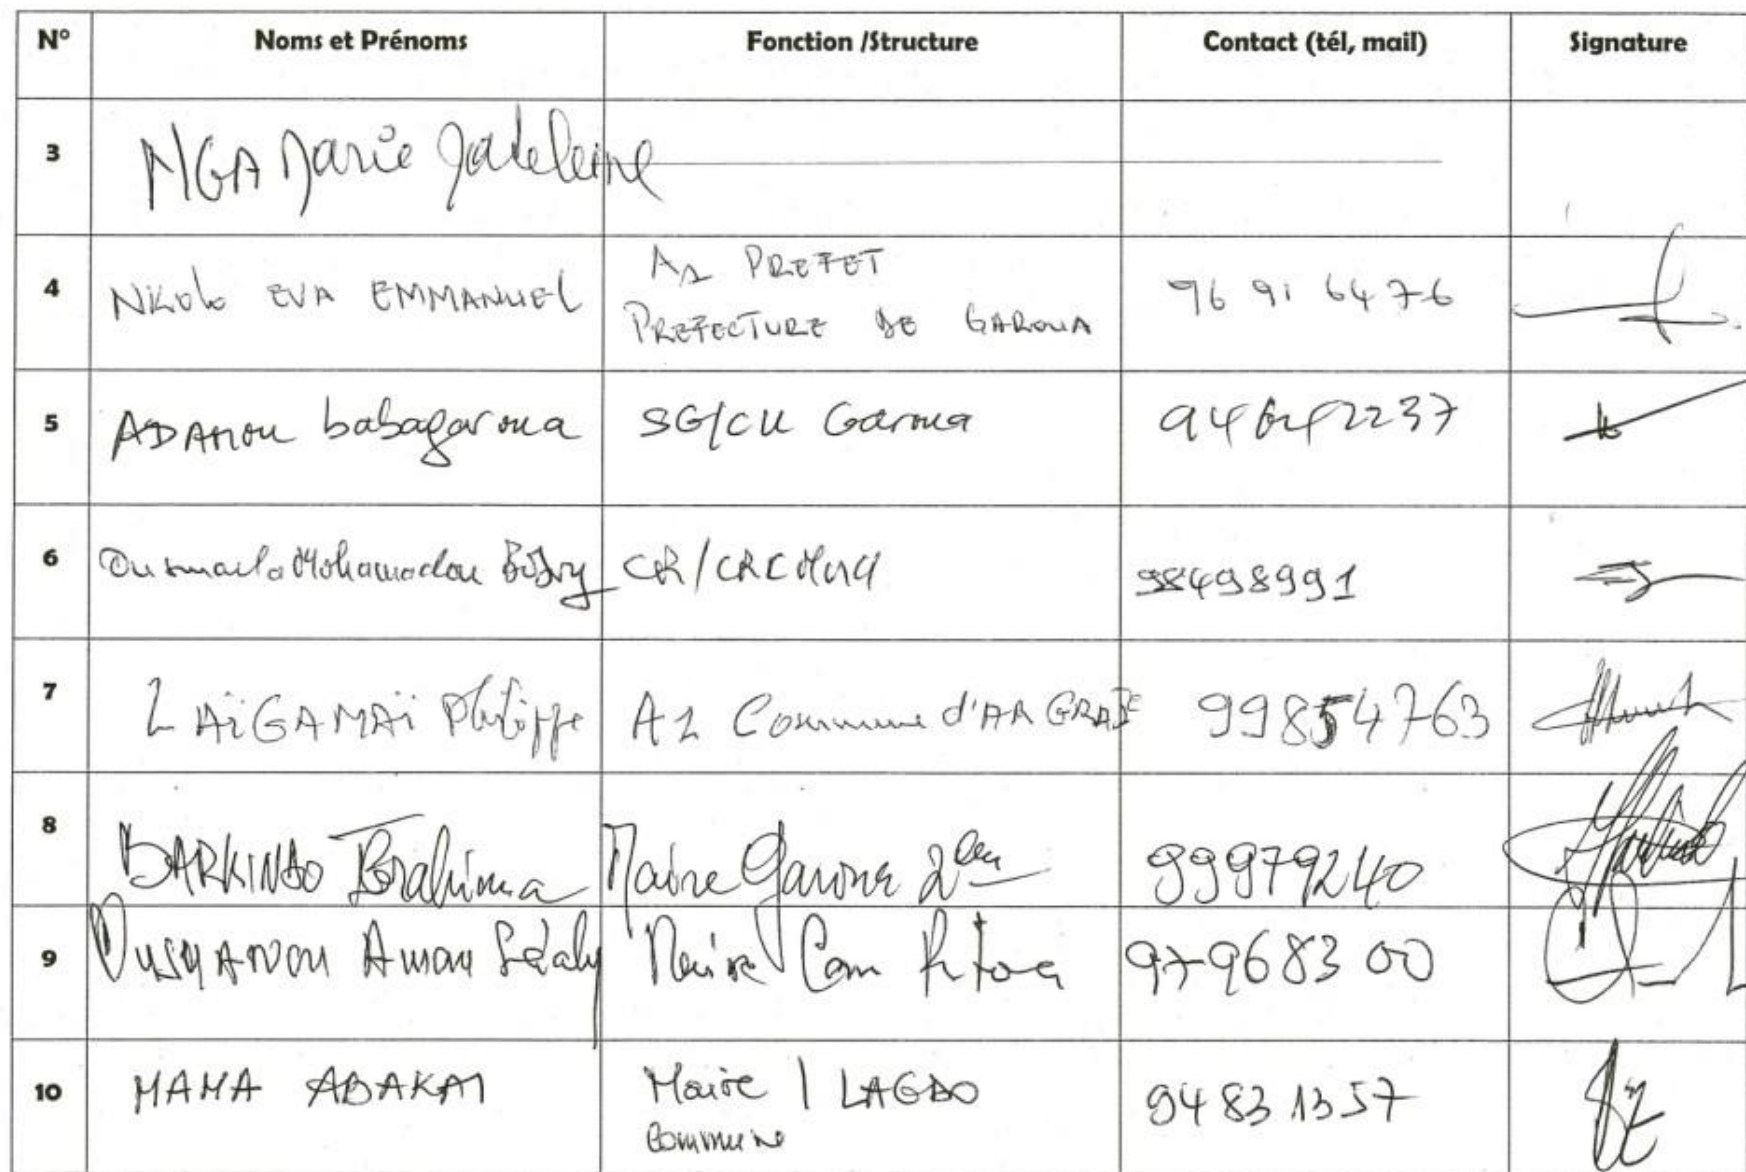 N° Noms et Prénoms Fonction /Structure Contact (tél, mail) Signature
3 MGA Marie Madeleine
4 Nkolo EVA EMMANUEL A1 PREFET PREFECTURE DE GAROUA 96 91 64 76
5 ADAMOU babagaroua SG/CU Garoua 94642237
6 Ousmaila Mohamadou CR/CRC 98498991
7 LAïGAMAï Philippe A1 Commune d'AR 99854763
8 BARKINDO Ibrahima Maire Garoua 2em 99979240
9 OUSMANOU Amaou Maire Com Pitoa 97968300
10 MAMA ABAKAI Maire / LAGDO Commune 94 83 13 57